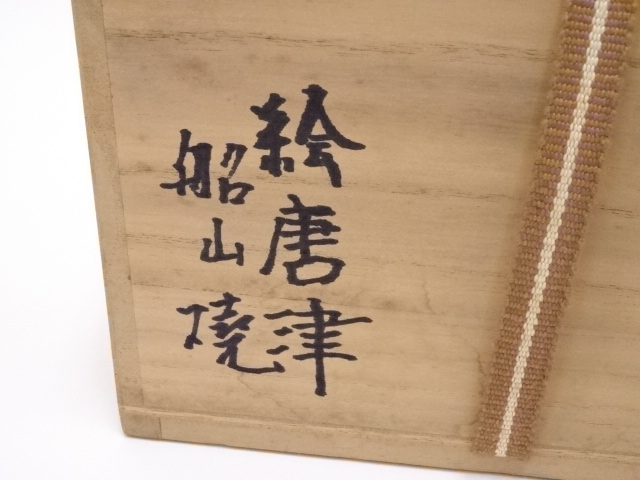 絵唐津
船山焼